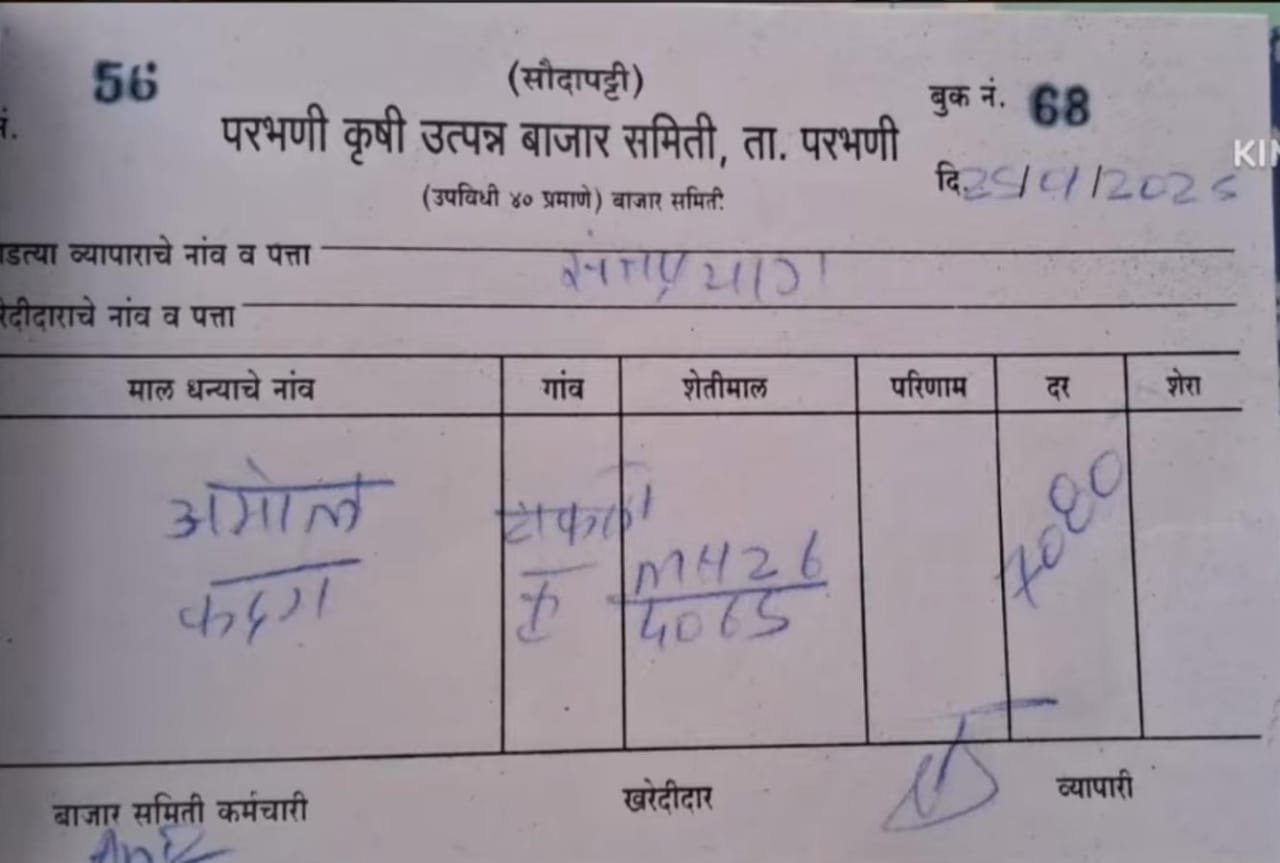 56
(सौदापट्टी)
बुक नं. 68
नं.
परभणी कृषी उत्पन्न बाजार समिती, ता. परभणी
दि. /2025
(उपविधी ४० प्रमाणे) बाजार समिती.
डत्या व्यापाराचे नांव व पत्ता
रेदीदाराचे नांव व पत्ता
माल धन्याचे नांव गांव शेतीमाल परिणाम दर शेरा
अमोल टाकळी
कदम MH26
4065
बाजार समिती कर्मचारी खरेदीदार व्यापारी